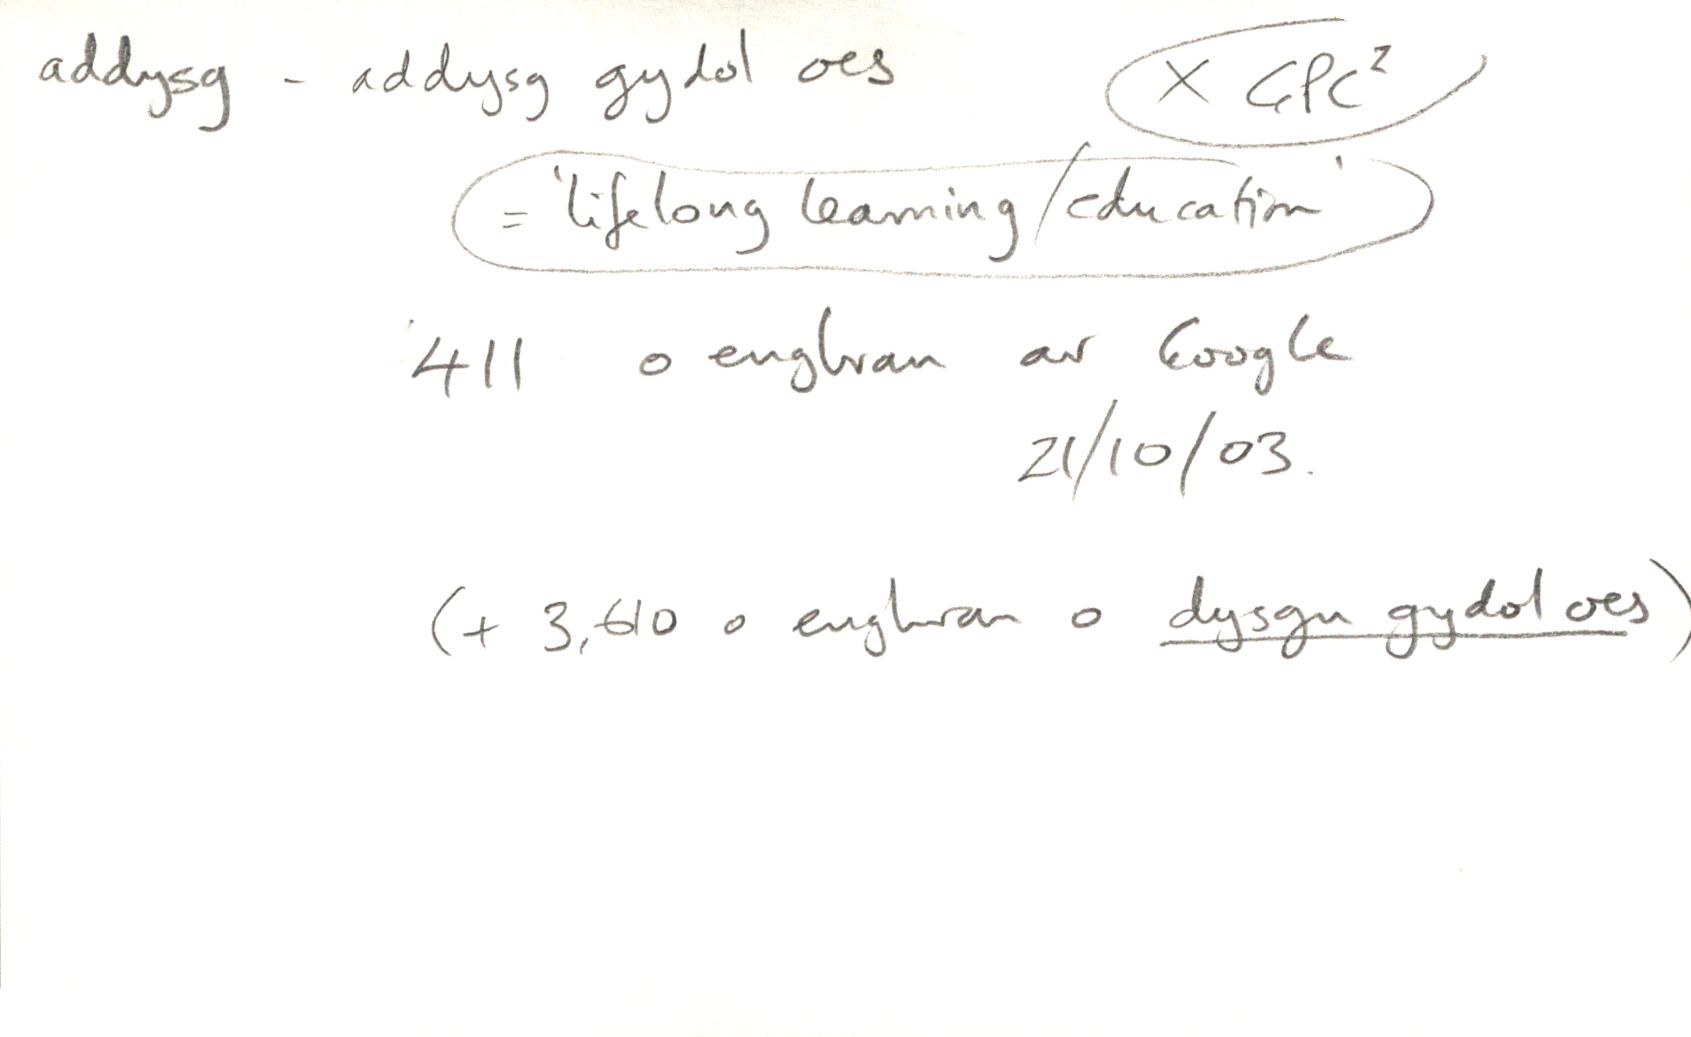 addysg - addysg gydol oes × GPC²
= 'lifelong learning/education'
411 o enghrau ar Google
21/10/03.
(+ 3,610 o enghrau o dysgu gydol oes)